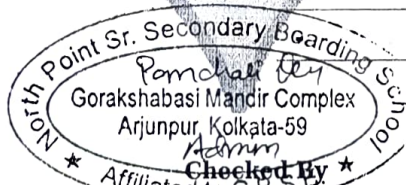 North Point Sr. Secondary Boarding School
Panchali Dey
Gorakshabasi Mandir Complex
Arjunpur, Kolkata-59
Admin
Checked By
Affiliated to